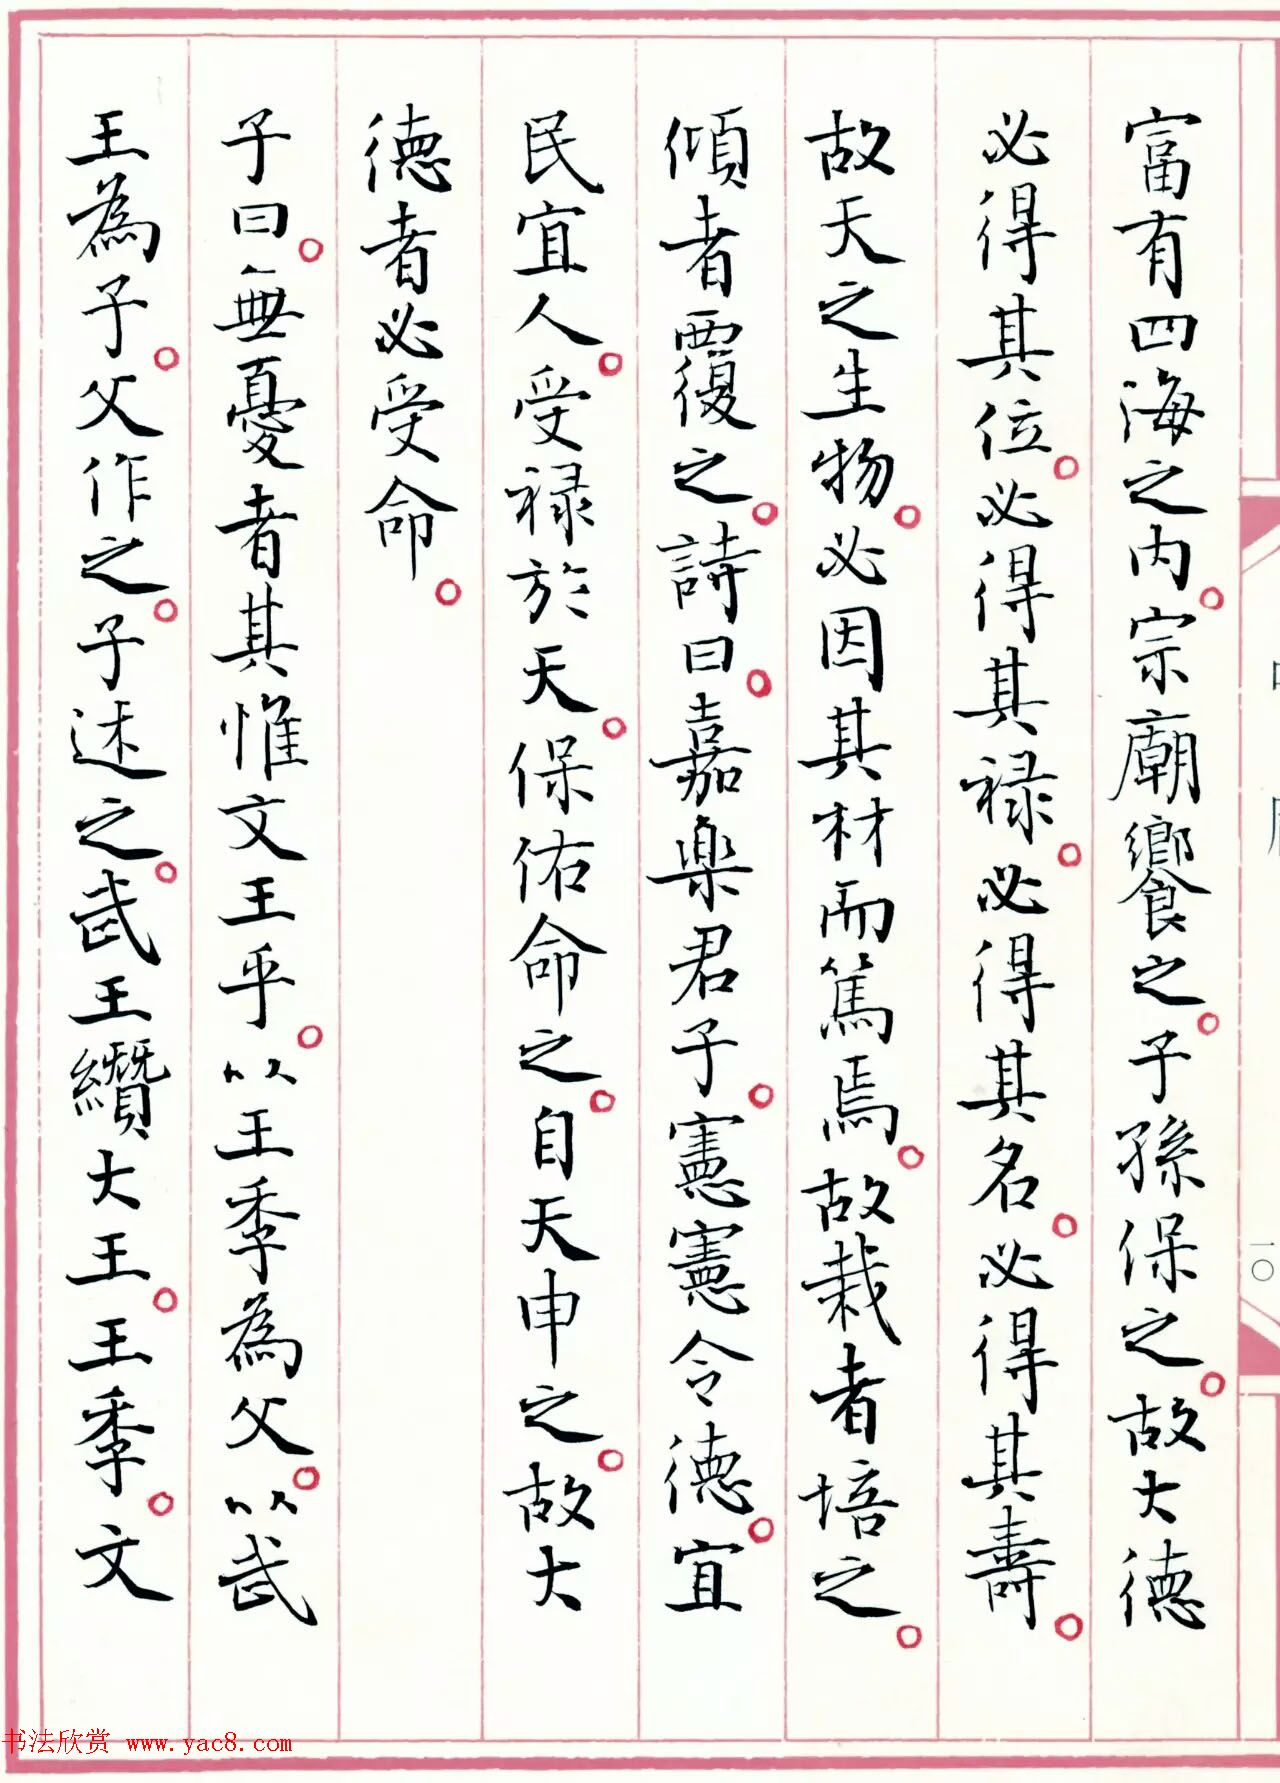 富有四海之内。宗廟饗之。子孫保之。故大德
必得其位。必得其禄。必得其名。必得其壽。
故天之生物。必因其材而篤焉。故栽者培之。
傾者覆之。詩曰。嘉樂君子。憲憲令德。宜
民宜人。受禄於天。保佑命之。自天申之。故大
德者必受命。
子曰。無憂者其惟文王乎。以王季為父。以武
王為子。父作之。子述之。武王纘大王。王季。文
一〇
书法欣赏 www.yac8.com